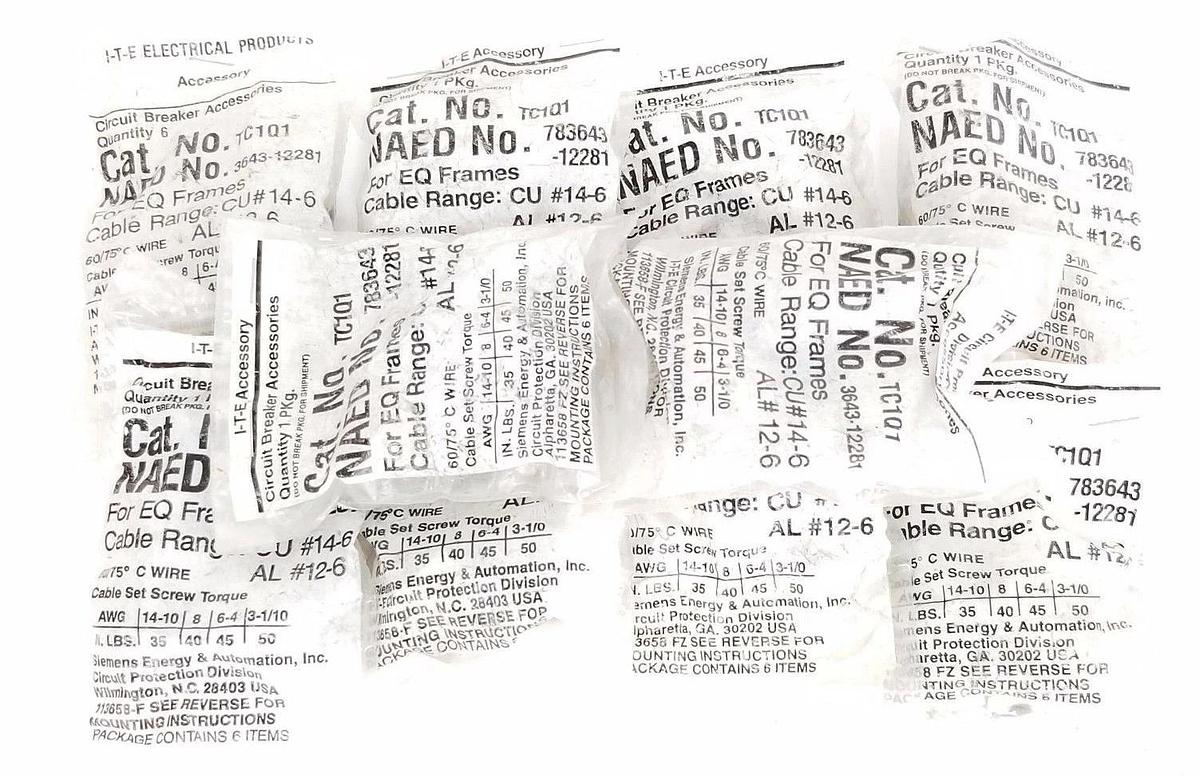 I-T-E ELECTRICAL PRODUCTS
Accessory
Circuit Breaker Accessories
Quantity 6
Cat. No. TC1Q1
No. 3643-12281
For EQ Frames
Cable Range: CU#14-6
AL
60/75° C WIRE
I-T-E Accessory
Accessories
1 PKg.
Cat. No. TC1Q1
NAED No. 783643
-12281
For EQ Frames
Cable Range: CU #14-6
AL #12-6
/75° C WIRE
I-T-E Accessory
it Breaker Accessories
at. No. TC1Q1
NAED No. 783643
-12281
EQ Frames
Cable Range: CU #14-6
AL #12-6
Breaker Accessories
Quantity 1 PKg.
(DO NOT BREAK PKG. FOR SHIPMENT)
Cat. No. TC1Q1
NAED No. 783643
-1228
For EQ Frames
Cable Range: CU #14-6
60/75° C WIRE AL #12-6
Set Screw
3-1/0
50
INS 6 ITEMS
I-T-E Accessory
Circuit Breaker Accessories
Quantity 1 PKg.
(DO NOT BREAK PKG. FOR SHIPMENT)
Cat. No. TC1Q1
NAED No. 783643
-12281
For EQ Frames
Cable Range: #14-
60/75° C WIRE AL
Cable Set Screw Torque
AWG 14-10 8 6-4 3-1/0
IN. LBS. 35 40 45 50
Siemens Energy & Automation, Inc.
Circuit Protection Division
Alpharetta, GA. 30202 USA
113658 FZ SEE REVERSE FOR
MOUNTING INSTRUCTIONS
PACKAGE CONTAINS 6 ITEMS
1 PKg.
Cat. No. TC1Q1
NAED No. 3643-12281
For EQ Frames
Cable Range: CU#14-6
60/75° C WIRE AL# 12-6
Cable Set Screw Torque
AWG 14-10 8 6-4 3-1/0
IN. LBS. 35 40 45 50
Siemens Energy & Automation, Inc.
I-T-E Circuit Protection Division
Wilmington, N.C.
113658-F SEE
I-T-
cuit Brea
Quantity
(DO NOT BREAK PKG.
Cat.
NAED
For EQ Fra
Cable Rang CU #14-6
/75° C WIRE AL #12-6
Cable Set Screw Torque
AWG 14-10 8 6-4 3-1/10
N. LBS. 35 40 45 50
Siemens Energy & Automation, Inc.
Circuit Protection Division
Wilmington, N.C. 28403 USA
112658-F SEE REVERSE FOR
MOUNTING INSTRUCTIONS
PACKAGE CONTAINS 6 ITEMS
/75° C WIRE AL
ble Set Screw Torque
WG 14-10 8 6-4 3-1/0
BS. 35 40 45 50
mens Energy & Automation, Inc.
Circuit Protection Division
mington, N.C. 28403 USA
3658-F SEE REVERSE FOR
UNTING INSTRUCTIONS
ACKAGE CONTAINS
ange: CU
/75° C WIRE AL #12-6
ble Set Screw Torque
AWG 14-10 8 6-4 3-1/0
N. LBS. 35 40 45 50
emens Energy & Automation, Inc.
rcuit Protection Division
lpharetta, GA. 30202 USA
3658 FZ SEE REVERSE FOR
OUNTING INSTRUCTIONS
ACKAGE CONTAINS 6 ITEMS
Accessory
er Accessories
TC1Q1
783643
-12281
or EQ Frame
ble Range: C
5° C WIRE AL #12
le Set Screw Torque
WG 14-10 8 6-4 3-1/0
LBS. 35 40 45 50
mens Energy & Automation, Inc.
uit Protection Division
aretta, GA. 30202 USA
58 FZ SEE REVERSE FOR
NTING INSTRUCTIONS
AGE CONTAINS 6 ITEMS